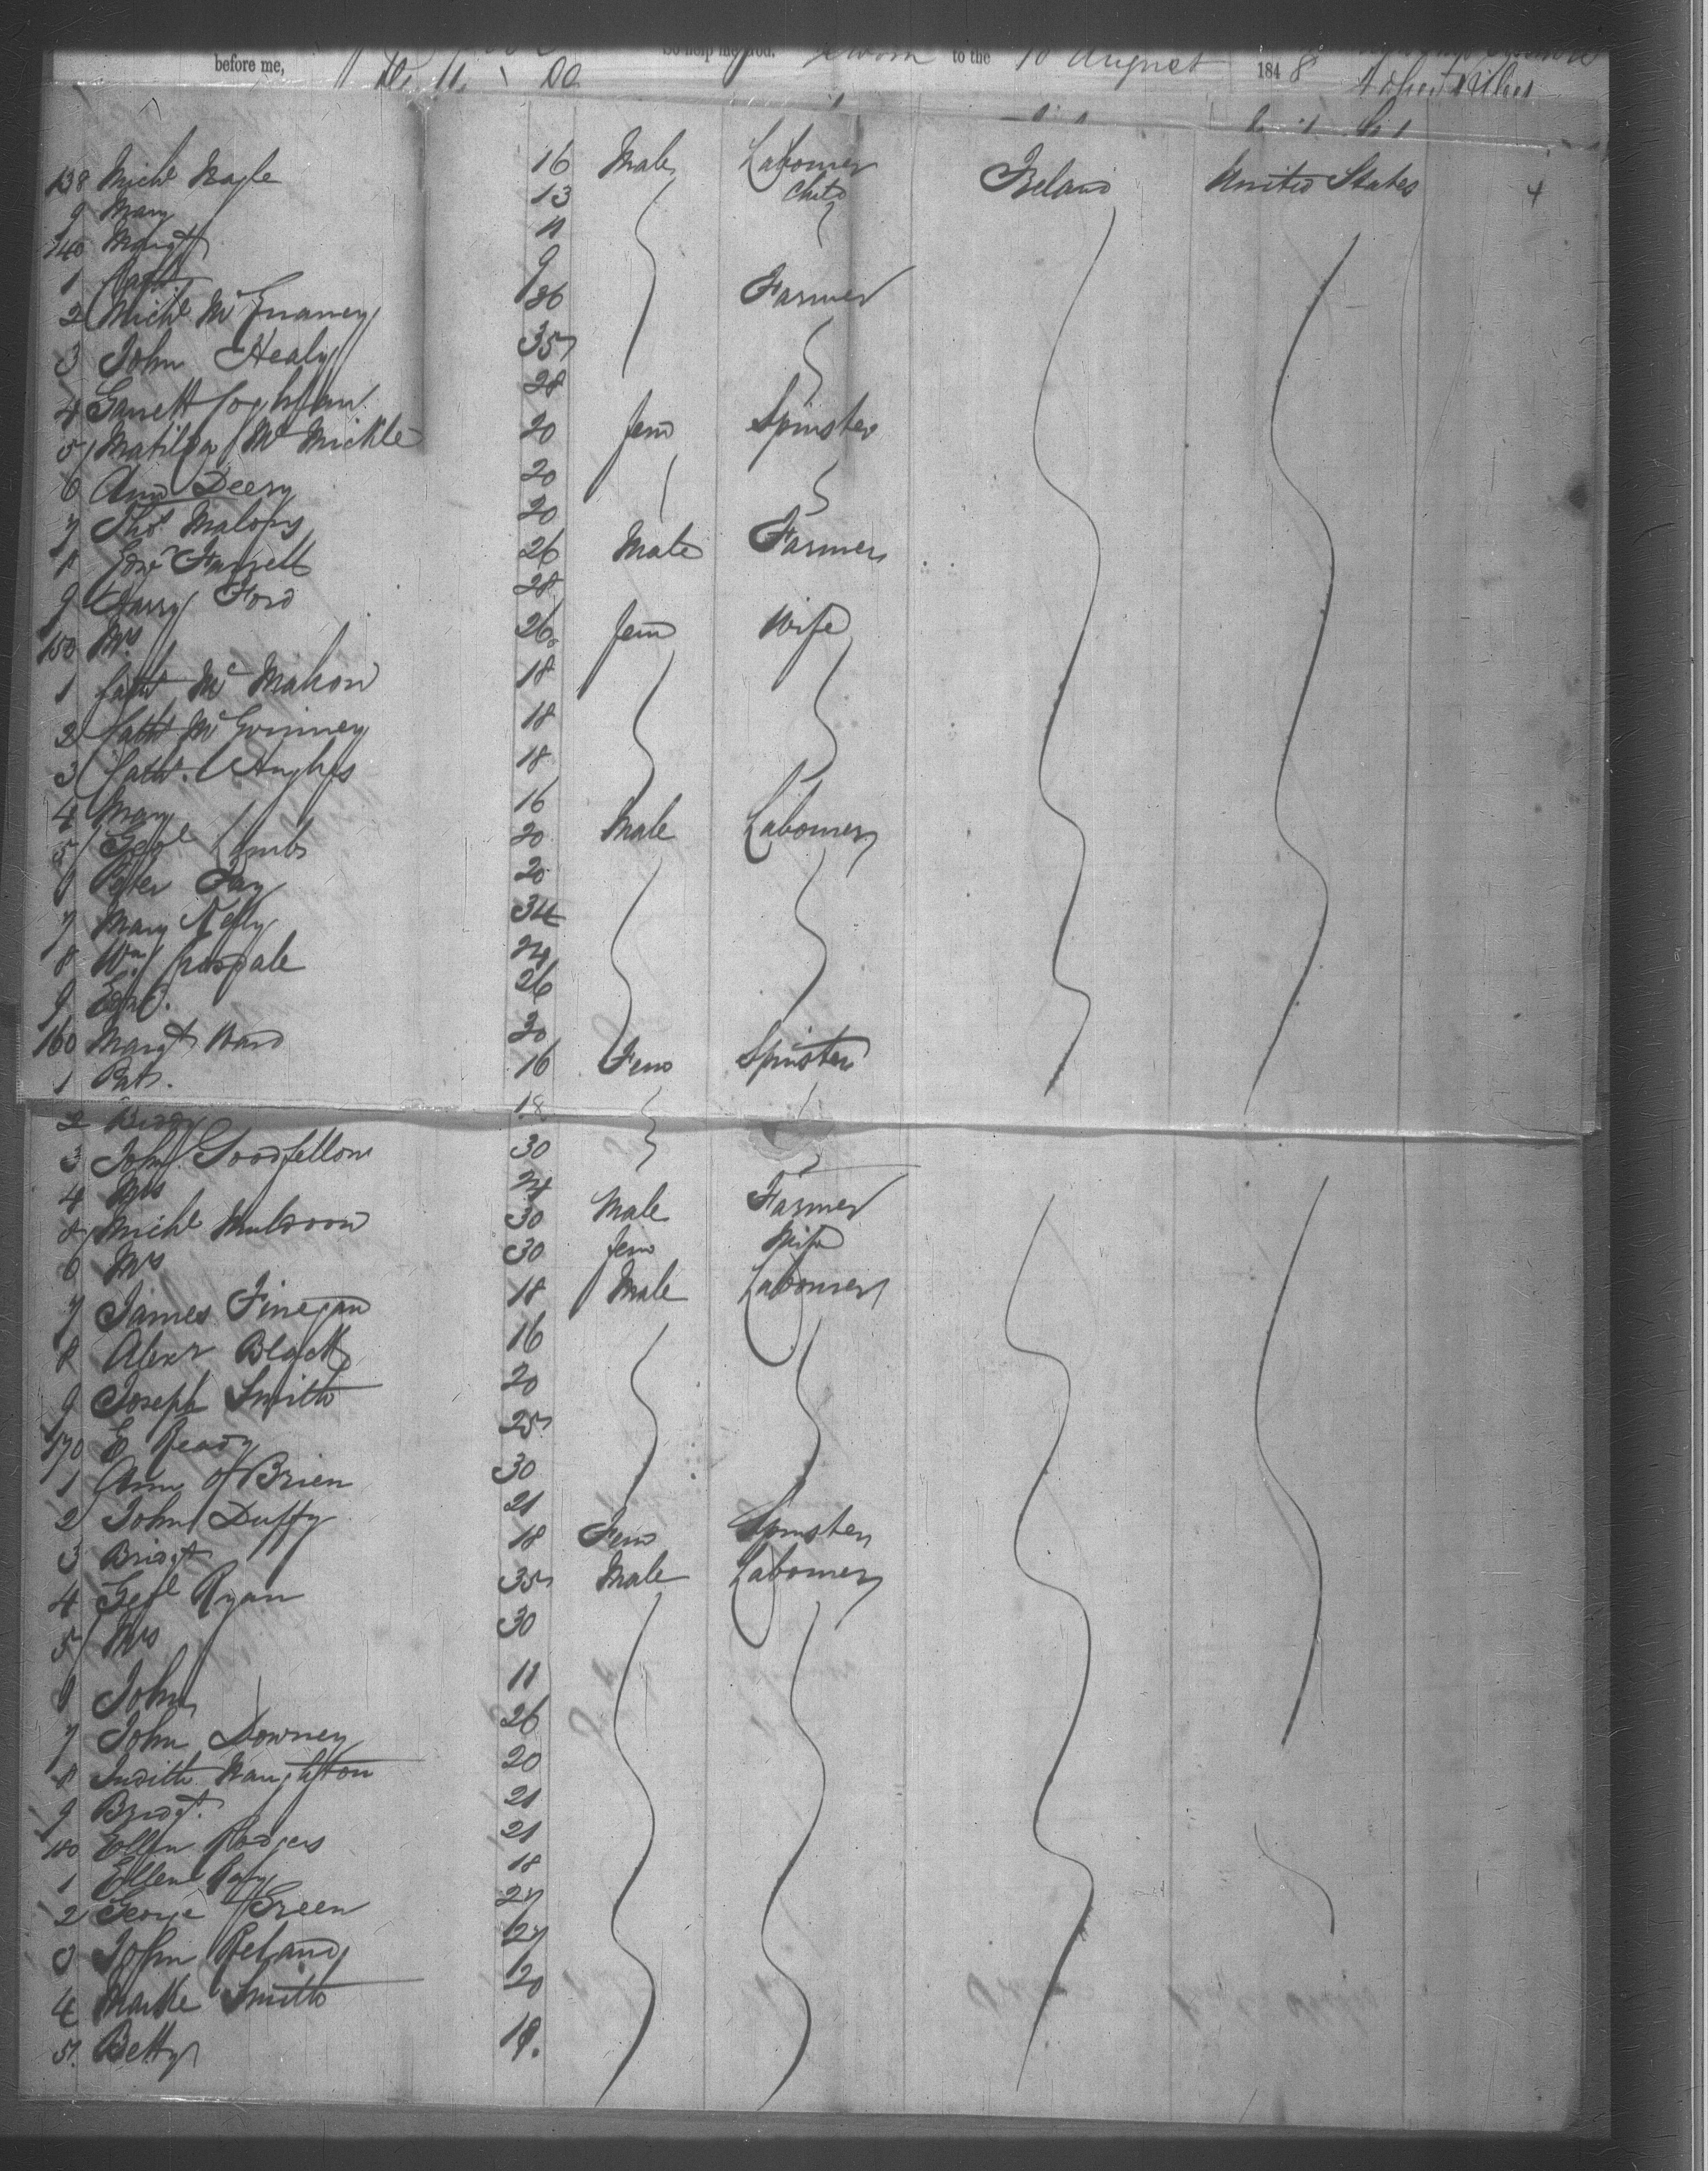 before me, So help me God. Sworn to the 10 August 1848
138 Michl Nagle 16 Male Labourer Ireland United States 4
9 Mary 13 Child
140 Margt 11
1 Cath 9
2 Michl Mc 36 Farmer
3 John Healy 35
4 Garrett Coghlan 28
5 Matilda Mc Mickle 20 Fem Spinster
6 Ann Deery 20
7 Thos Malony 20
8 Edwd Farrell 26 Male Farmer
9 Harry Ford 28
150 Mrs 26 Fem Wife
1 Cath Mc Mahon 18
2 Cath Mc Guinney 18
3 Cath. Hughes 18
4 Mary 16
5 20 Male Labourer
6 Peter Fay 20
7 Mary Kelly 34
8 Wm 24
9 Edwd. 26
160 Margt Ward 20
1 Pat. 16 Fem Spinster
2 Biddy 18
3 John Goodfellow 30
4 Mrs 24
5 Michl Muldoon 30 Male Farmer
6 Mrs 30 Fem Wife
7 James Finegan 18 Male Labourer
8 Alexr Black 16
9 Joseph Smith 20
170 E Ready 25
1 Ann O'Brien 30
2 John Duffy 21
3 Bridgt 18 Fem Spinster
4 Ryan 35 Male Labourer
5 Mrs 30
6 John 11
7 John Downey 26
8 Judith Naughton 20
9 Bridgt. 21
180 Ellen Rodgers 21
1 Ellen 18
2 George Green 27
3 John Reland 27
4 Smith 20
5. Betty 19.